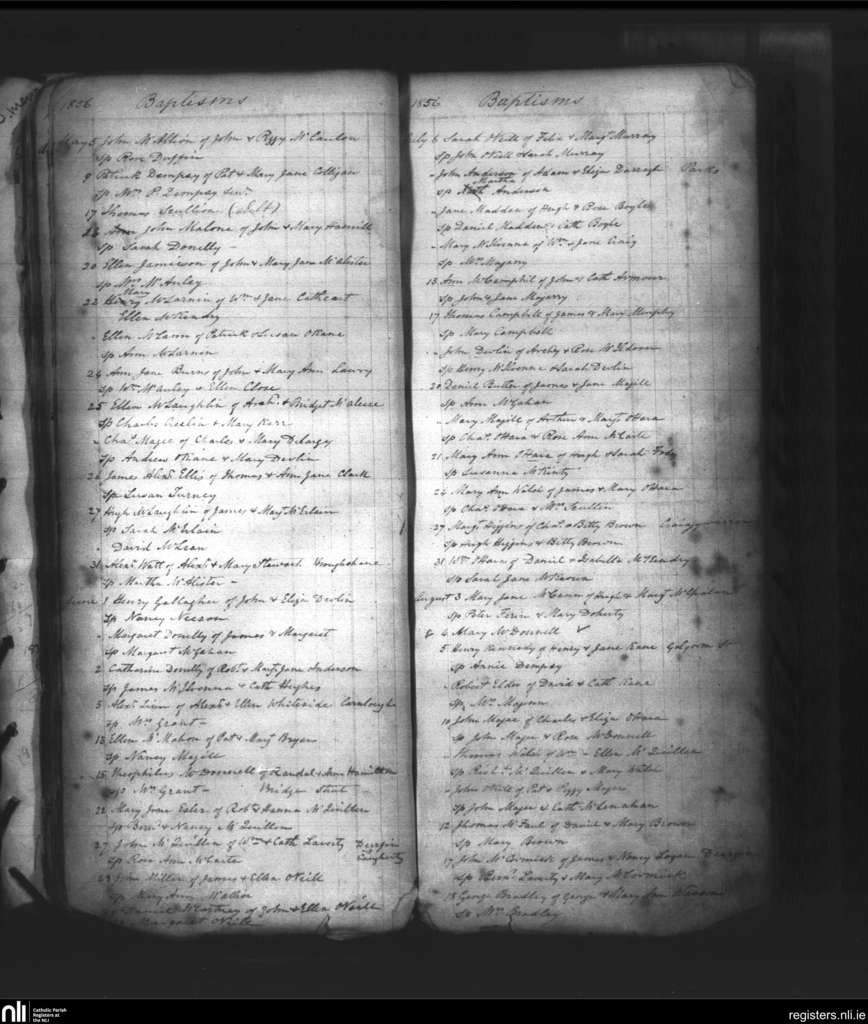 1856 Baptisms
May 5 John McAllion of John & Peggy McCanlon
Sp Rose Duffin
9 Patrick Dempsey of Pat & Mary Jane Colligan
Sp Mrs P. Dempsey Senr
17 Thomas Scullion (adult)
John Malone of John & Mary Hamill
Sp Sarah Donelly -
20 Ellen Jamieson of John & Mary Jane McAlister
Sp Mrs McAuley
Mary
22 McLarnin of Wm & Jane Cathcart
Ellen McKendry
" Ellen of Patrick & Susan OKane
Sp Ann McLarnon
24 Ann Jane Burns of John & Mary Ann Lowry
Sp Wm McAuley & Ellen Close
25 Ellen McLaughlin of Archd & Bridget McAleese
Sp Charles & Mary Kerr
" Chas Magee of Charles & Mary Delargy
Sp Andrew OKane & Mary Devlin
26 James Alexr Ellis of Thomas & Ann Jane Clark
Sp Susan Turney
27 Hugh McLaughlin of James & Margt McErlain
Sp Sarah McErlain
" David McLean
31 Alexr Watt of Alexr & Mary Stewart Broughshane
Sp Martha McAlister -
June 1 Henry Gallagher of John & Eliza Devlin
Sp Nancy Neeson
" Margaret Donelly of James & Margaret
Sp Margaret McGahan
2 Catharine Donelly of Robt & Margt Jane Anderson
Sp James & Cath Hughes
5 Alexr Linn of Alexr & Ellen Whiteside
Sp Mrs Grant -
13 Ellen McMahon of Pat & Margt Bryan
Sp Nancy Magill
15 Theophilus McDonnell of Randal & Ann Hamilton
Sp Mrs Grant - Bridge Street -
22 Mary Jane Esler of Robt & Hanna McQuillan
Sp Bernd & Nancy McQuillan
27 John McQuillan of Wm & Cath Laverty
Sp Rose Ann
28 John Miller of James & Ellen ONeill
Sp Mary Ann
of John & Ellen ONeill
Margaret ONeill
1856 Baptisms
July 6 Sarah ONeill of Felix & Margt Murray
Sp John ONeill & Sarah Murray
" John Anderson of Adam & Eliza Darragh Parks
Martha
Sp Anderson
" Jane Madden of Hugh & Rose Boyle
Sp Daniel Madden & Cath Boyle
" Mary of Wm & Jane Craig
Sp Mrs
13 Ann McCamphil of John & Cath Armour
Sp John & Jane
17 Thomas Campbell of James & Mary Murphy
Sp Mary Campbell
" John Devlin of Archy & Rose
Sp Henry & Sarah Devlin
20 Daniel Butler of James & Jane Magill
Sp Ann McGahan
" Mary Magill of Arthur & Margt OHara
Sp Chas OHara & Rose Ann
21 Mary Ann OHara of Hugh & Sarah
Sp Susanna McKinty
24 Mary Ann Welch of James & Mary OHara
Sp Chas OHara & Mrs Scullin
27 Margt Higgins of Chas & Betty Brown
Sp Hugh Higgins & Betty Brown
31 Wm OHara of Daniel & Isabella McKendry
Sp Sarah Jane McKeown
August 3 Mary Jane McCann of Hugh & Margt
Sp Peter & Mary Doherty
4 Mary McDonnell
5 Henry Kennedy of Henry & Jane Kane Galgorm St
Sp Annie Dempsey
" Robert Elder of David & Cath Kane
Sp Mrs
10 John Magee of Charles & Eliza OHara
Sp John Magee & Rose McDonnell
" Thomas Welch of Wm - Ellen McQuillan
Sp Robt McQuillan & Mary Welch
" John ONeill of Pat & Peggy Magee
Sp John Magee & Cath McLenahan
12 Thomas McFaul of David & Mary Brown
Sp Mary Brown
17 John McCormick of James & Nancy Logan
Sp Bernd Laverty & Mary McCormick
18 George Bradley of George & Mary Ann
Sp Mrs Bradley
nli
Catholic Parish
Registers at
the NLI
registers.nli.ie